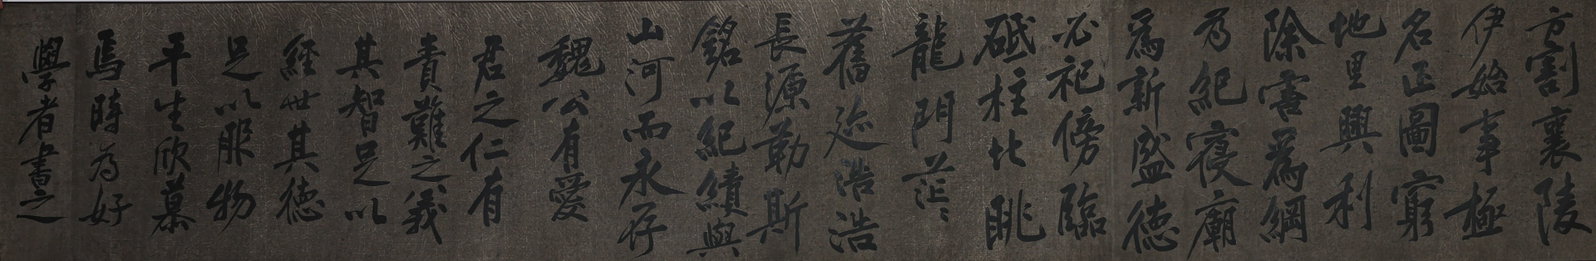 方割襄陵
伊始事極
名正圖窮
地里興利
除害為綱
乃紀寑廟
為新盛德
必祀傍臨
砥柱北眺
龍門茫〻
舊跡浩浩
長源勒斯
銘以紀績與
山河而永存
魏公有愛
君之仁有
責難之義
其智足以
經世其德
足以服物
平生欣慕
焉時為好
學者書之